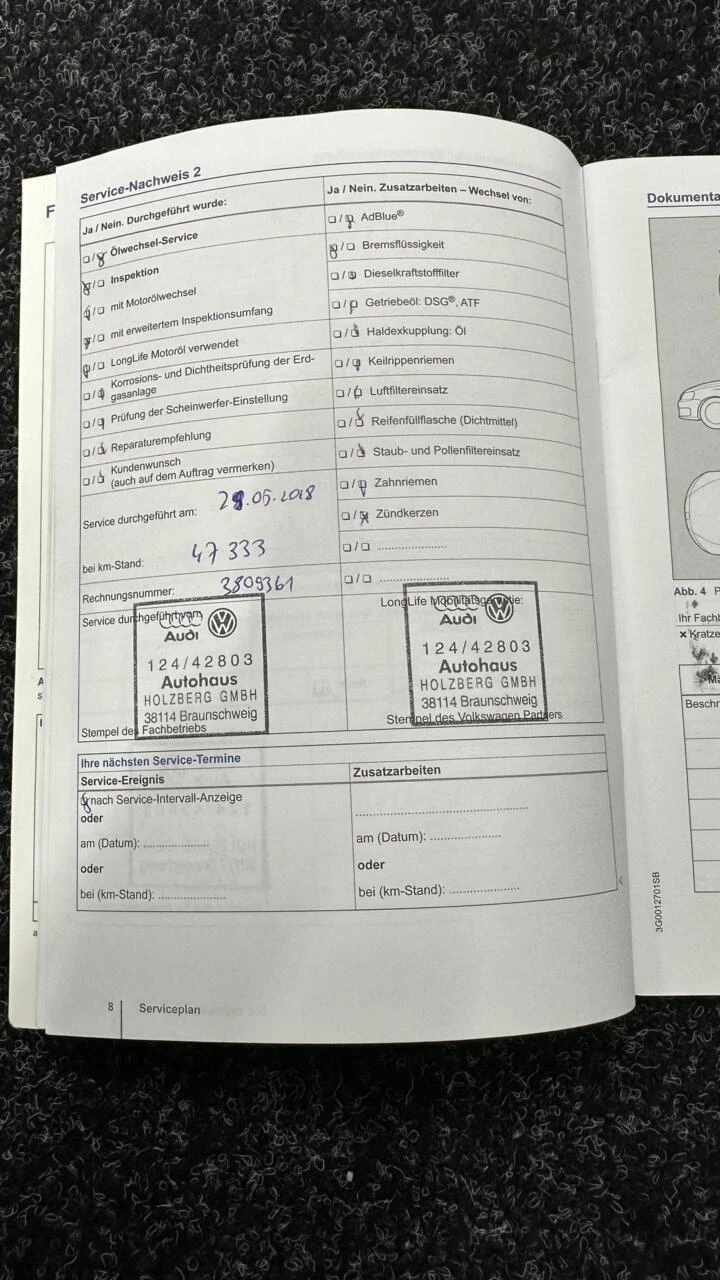 Service-Nachweis 2
Ja / Nein. Durchgeführt wurde:
Ölwechsel-Service
Inspektion
mit Motorölwechsel
mit erweitertem Inspektionsumfang
LongLife Motoröl verwendet
Korrosions- und Dichtheitsprüfung der Erd-
gasanlage
Prüfung der Scheinwerfer-Einstellung
Reparaturempfehlung
Kundenwunsch
(auch auf dem Auftrag vermerken)
Service durchgeführt am: 29.05.2018
bei km-Stand: 47 333
Rechnungsnummer: 3809361
Service durchgeführt von:
Audi
124/42803
Autohaus
HOLZBERG GMBH
38114 Braunschweig
Stempel des Fachbetriebs
Ja / Nein. Zusatzarbeiten – Wechsel von:
AdBlue®
Bremsflüssigkeit
Dieselkraftstofffilter
Getriebeöl: DSG®, ATF
Haldexkupplung: Öl
Keilrippenriemen
Luftfiltereinsatz
Reifenfüllflasche (Dichtmittel)
Staub- und Pollenfiltereinsatz
Zahnriemen
Zündkerzen
LongLife Mobilitätsgarantie:
Audi
124/42803
Autohaus
HOLZBERG GMBH
38114 Braunschweig
Stempel des Volkswagen Partners
Ihre nächsten Service-Termine
Service-Ereignis
nach Service-Intervall-Anzeige
oder
am (Datum):
oder
bei (km-Stand):
Zusatzarbeiten
am (Datum):
oder
bei (km-Stand):
8 Serviceplan
Dokumenta
Abb. 4 P
Ihr Fachb
× Kratze
Beschr
3G0012701SB